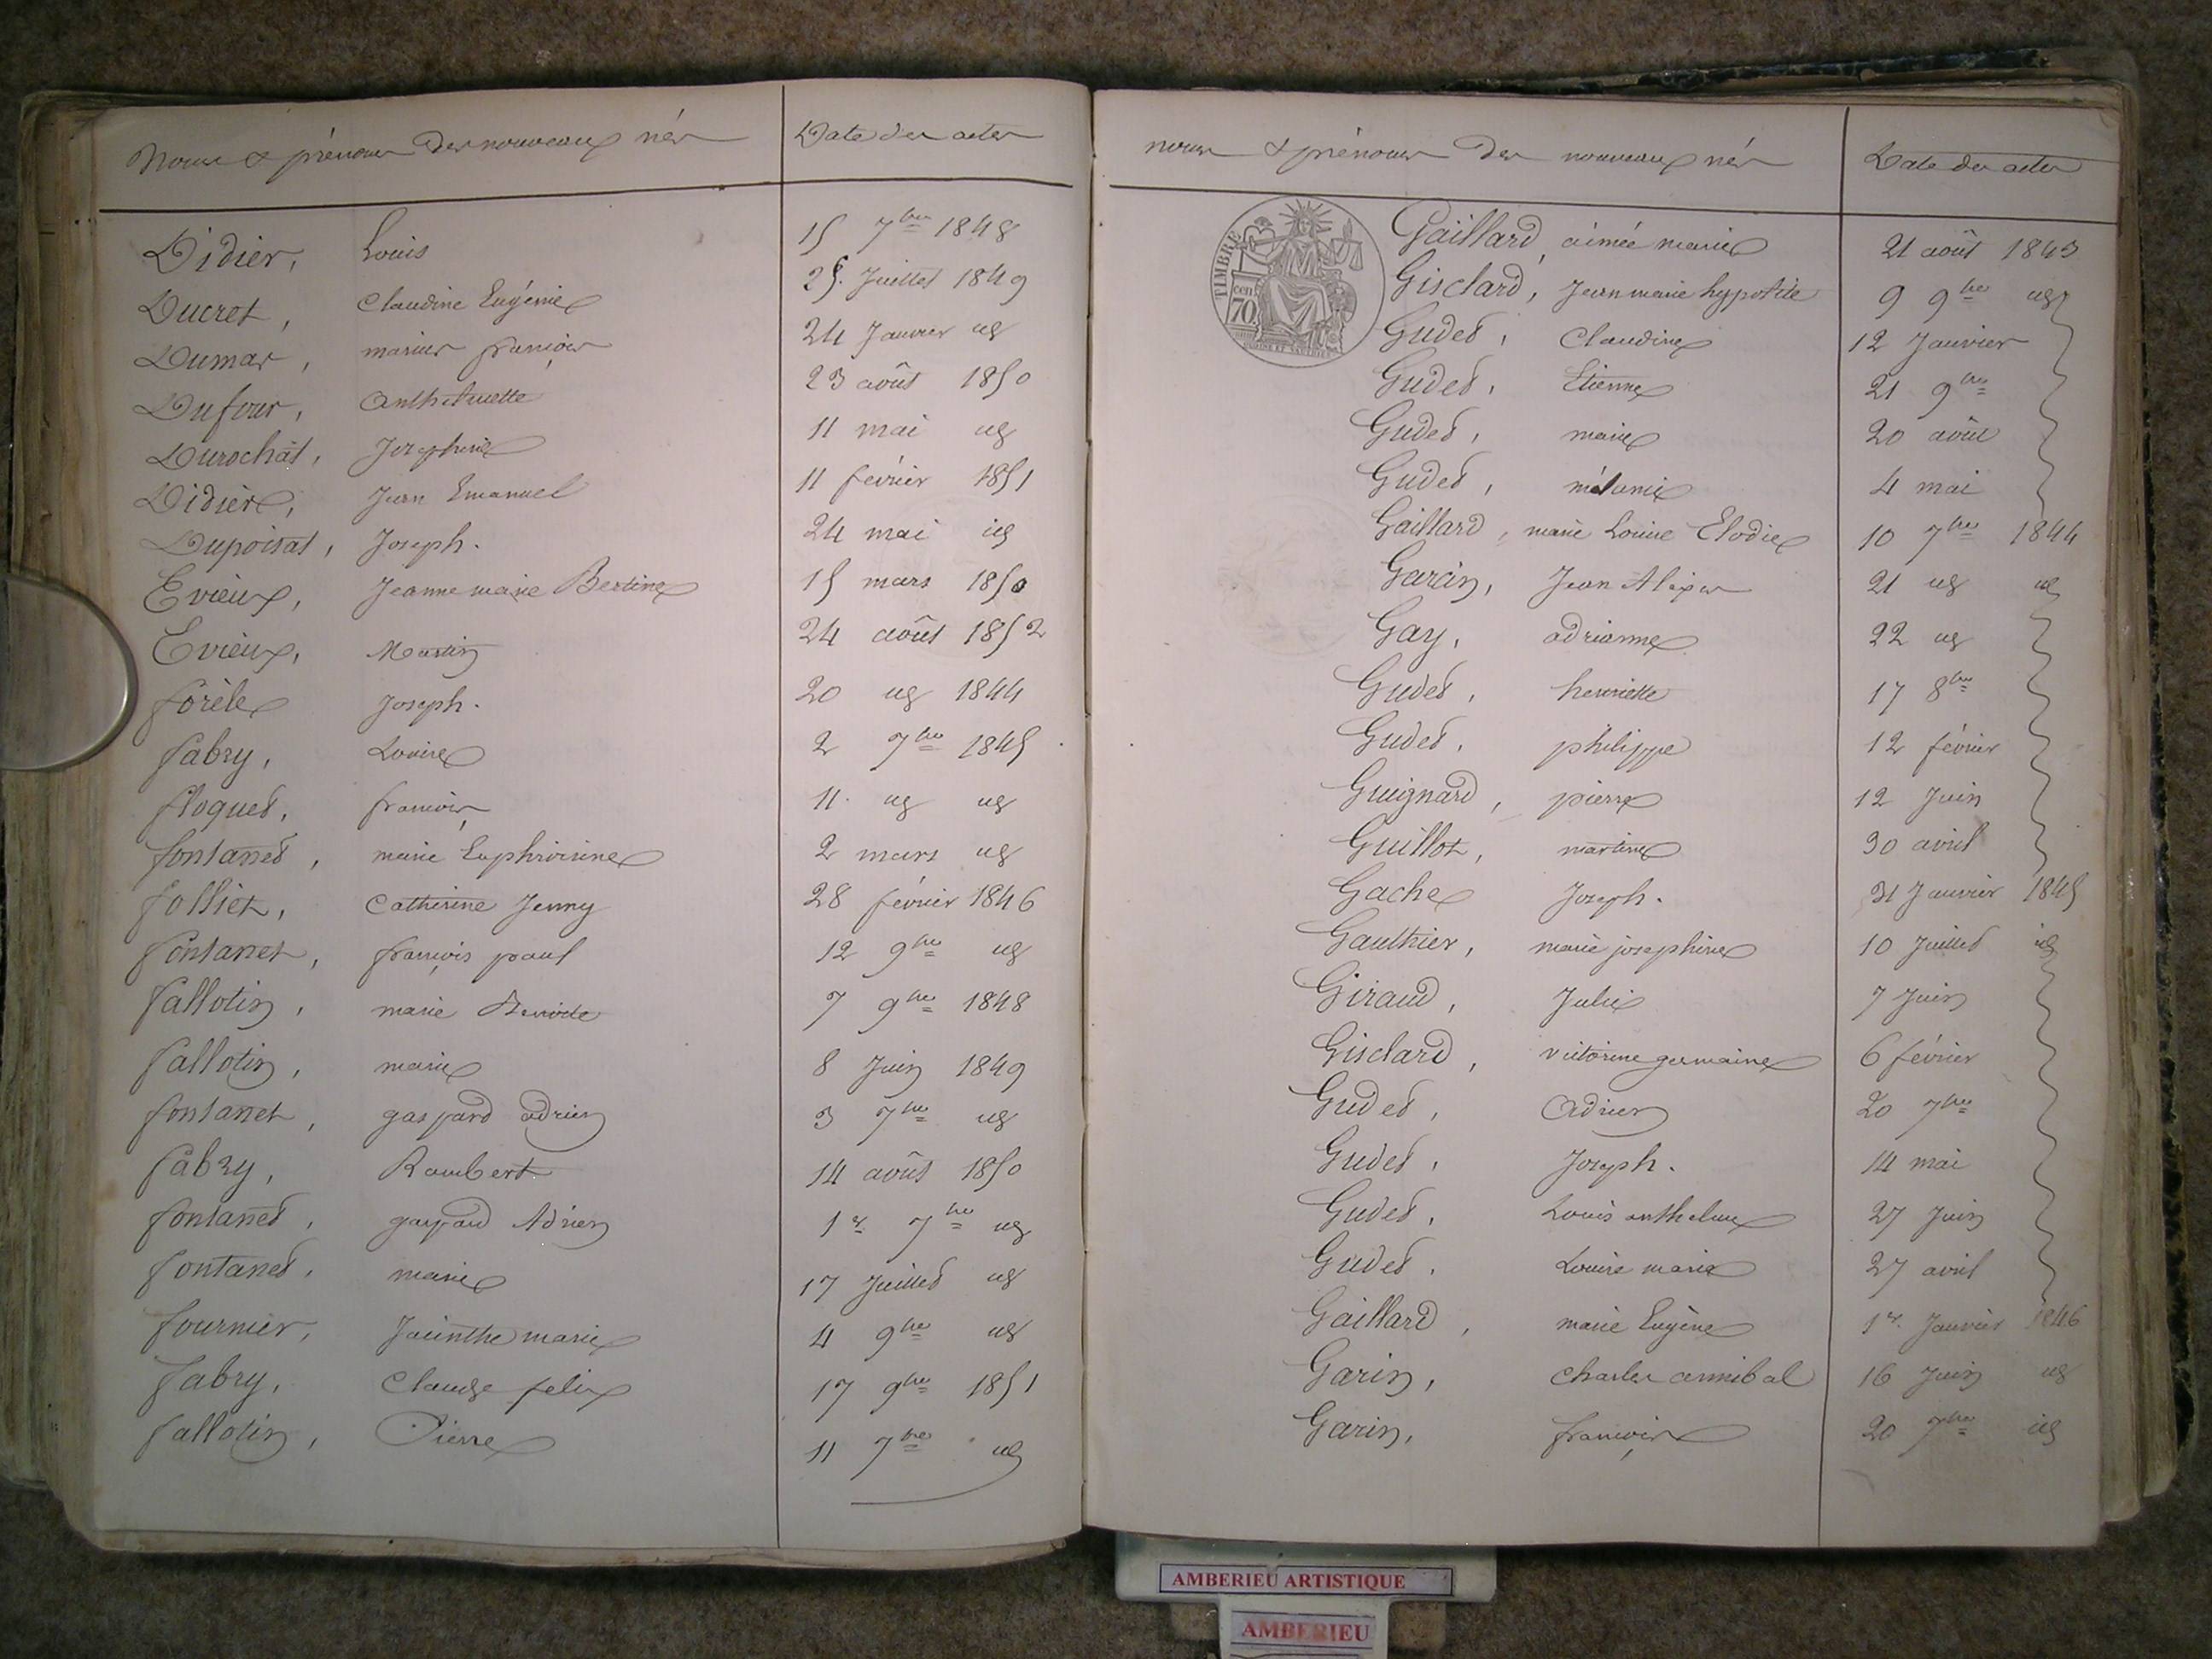 Noms & prénoms des nouveaux nés Date des actes
Didier, Louis 15 7bre 1848
Ducret, Claudine Eugénie 25 Juillet 1849
Dumas, marius françois 24 Janvier id
Dufour, Anthelmette 23 août 1850
Durochat, Josephine 11 mai id
Didière, Jean Emanuel 11 février 1851
Dupoisat, Joseph. 24 mai id
Evieux, Jeanne marie Bertine 15 mars 1850
Evieux, Martin 24 août 1852
forèle Joseph. 20 id 1844
fabry, Louise 2 7bre 1845
floquet, françois 11 id id
fontanet, marie Euphroisine 2 mars id
folliet, Catherine Jenny 28 février 1846
fontanet, françois paul 12 9bre id
fallotin, marie 7 9bre 1848
fallotin, marie 8 Juin 1849
fontanet, gaspard adrien 3 7bre id
fabry, Rambert 14 août 1850
fontanet, gaspard Adrien 1er 7bre id
fontanet, marie 17 Juillet id
fournier, Jacinthe marie 4 9bre id
fabry, Claude felix 17 9bre 1851
fallotin, Pierre 11 7bre id
noms & prénoms des nouveaux nés Date des actes
TIMBRE
70 cen
Gaillard, aimée marie 21 août 1843
Gisclard, Jean marie hypolite 9 9bre id
Gudet, Claudine 12 Janvier
Gudet, Etienne 21 9bre
Gudet, marie 20 août
Gudet, mélanie 4 mai
Gaillard, marie Louise Elodie 10 7bre 1844
Garcin, Jean Alexis 21 id id
Gay, adrianne 22 id
Gudet, henriette 17 8bre
Gudet, philippe 12 février
Guignard, pierre 12 Juin
Guillot, martine 30 avril
Gache Joseph. 31 Janvier 1845
Gauthier, marie josephine 10 Juillet id
Giraud, Julie 7 Juin
Gisclard, victorine germaine 6 février
Gudet, Adrien 20 7bre
Gudet, Joseph. 14 mai
Gudet, Louis anthelme 27 Juin
Gudet, Louise marie 27 avril
Gaillard, marie Eugène 1er Janvier 1846
Garin, Charles annibal 16 Juin id
Garin, françois 20 7bre id
AMBERIEU ARTISTIQUE
AMBERIEU